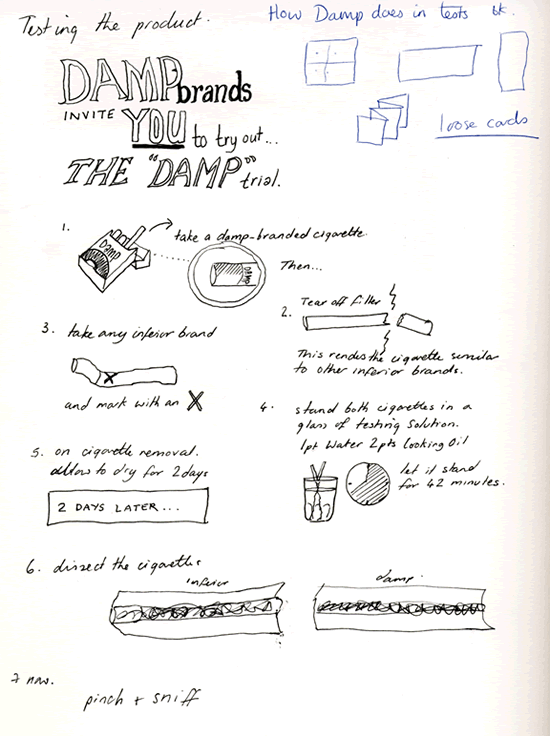 Testing the product.
How Damp does in tests bk.
loose cards
DAMP brands
INVITE YOU to try out...
THE "DAMP" trial.
1.
take a damp-branded cigarette
DAMP
DAMP
Then...
2. Tear off filter
This renders the cigarette similar
to other inferior brands.
3. take any inferior brand
and mark with an X
4. stand both cigarettes in a
glass of testing solution.
1pt Water 2pts Cooking Oil
let it stand
for 42 minutes.
5. on cigarette removal.
allow to dry for 2 days
2 DAYS LATER...
6. dissect the cigarettes
inferior
damp.
7 now.
pinch + sniff